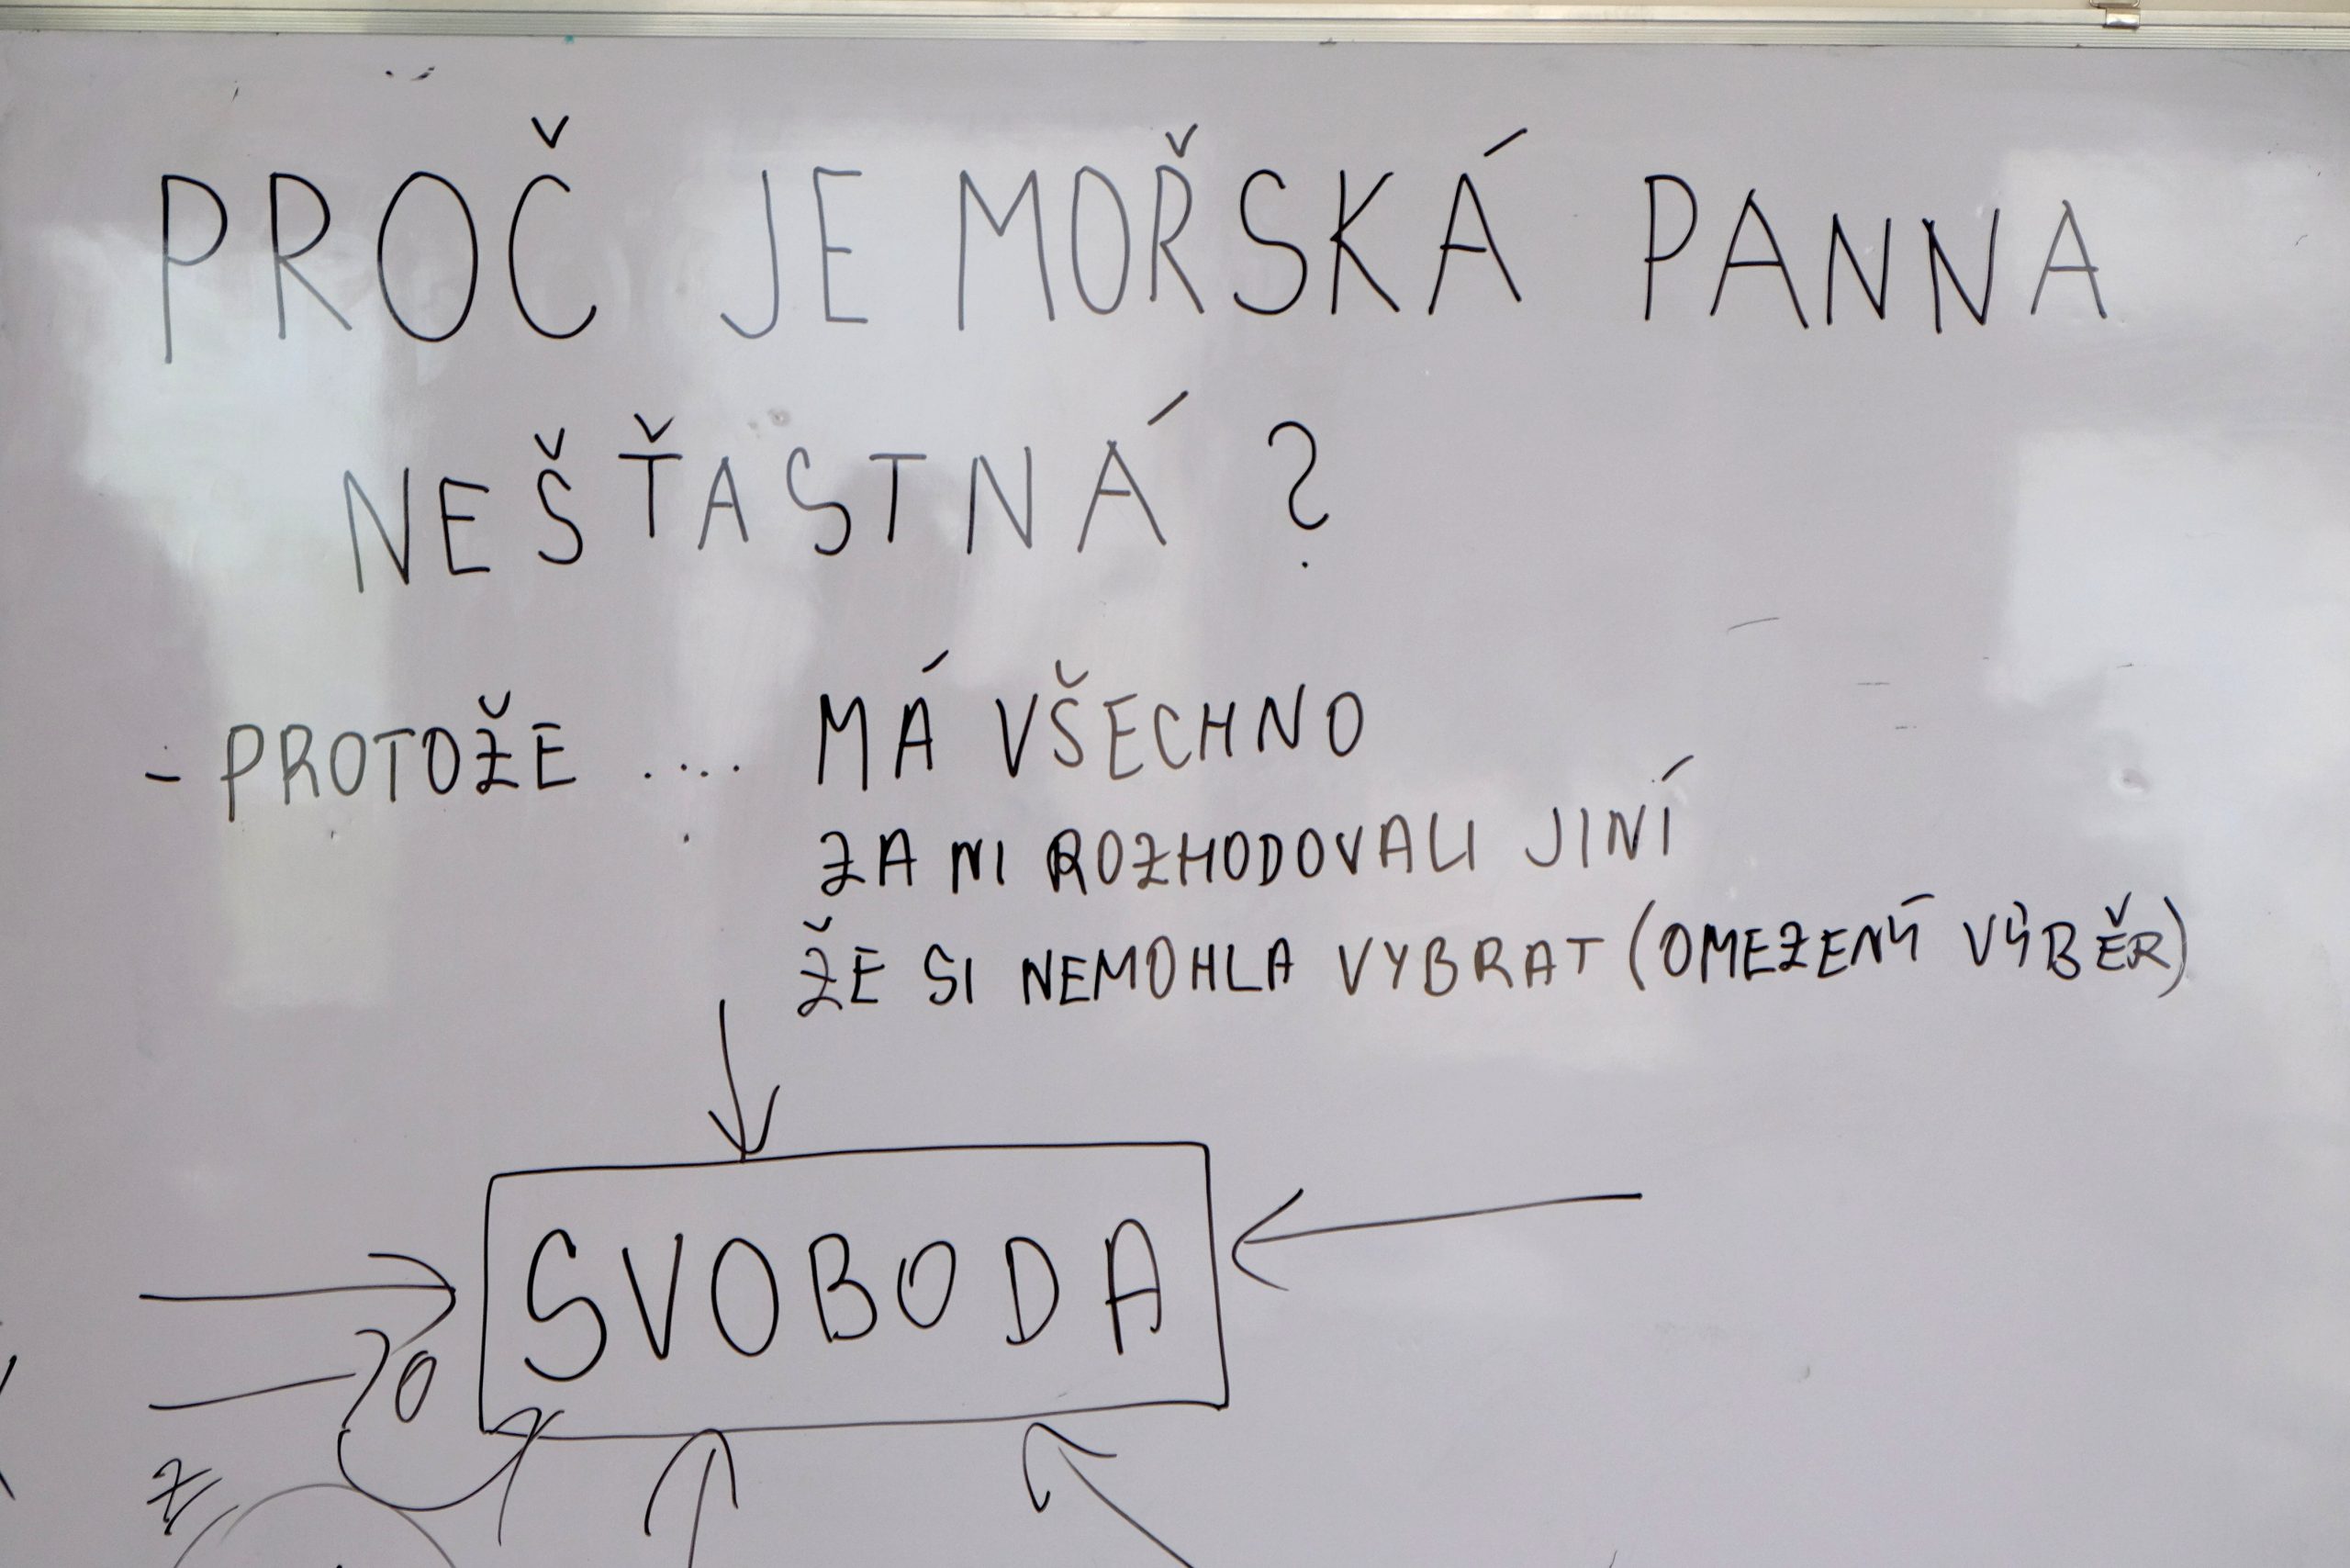 PROČ JE MOŘSKÁ PANNA
NEŠŤASTNÁ ?
- PROTOŽE .... MÁ VŠECHNO
ZA NI ROZHODOVALI JINÍ
ŽE SI NEMOHLA VYBRAT (OMEZENÝ VÝBĚR)
SVOBODA